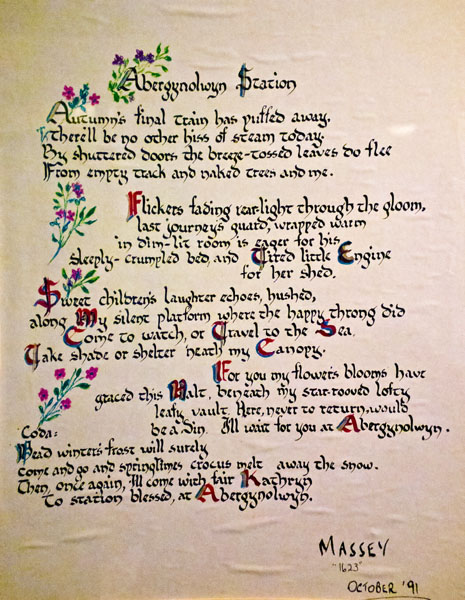 Abergynolwyn Station
Autumn's final train has puffed away.
There'll be no other hiss of steam today.
By shuttered doors the breeze-tossed leaves do flee
From empty track and naked trees and me.
Flickers fading rear-light through the gloom,
last journey's guard, wrapped warm
in dim-lit room is eager for his
sleeply-crumpled bed, and Tired little Engine
for her shed.
Sweet children's laughter echoes, hushed,
along My silent platform where the happy throng did
Come to watch, or Travel to the Sea.
Take shade or shelter neath my Canopy.
For you my flower's blooms have
graced this Halt, beneath my star-rooved lofty
leafy vault. Here, never to return, would
be a Sin. I'll wait for you at Abergynolwyn.
Coda:
Dead winter's frost will surely
come and go and springtimes crocus melt away the snow.
Then, once again, I'll come with fair Kathryn
To station blessed, at Abergynolwyn.
MASSEY
"1623"
OCTOBER '91